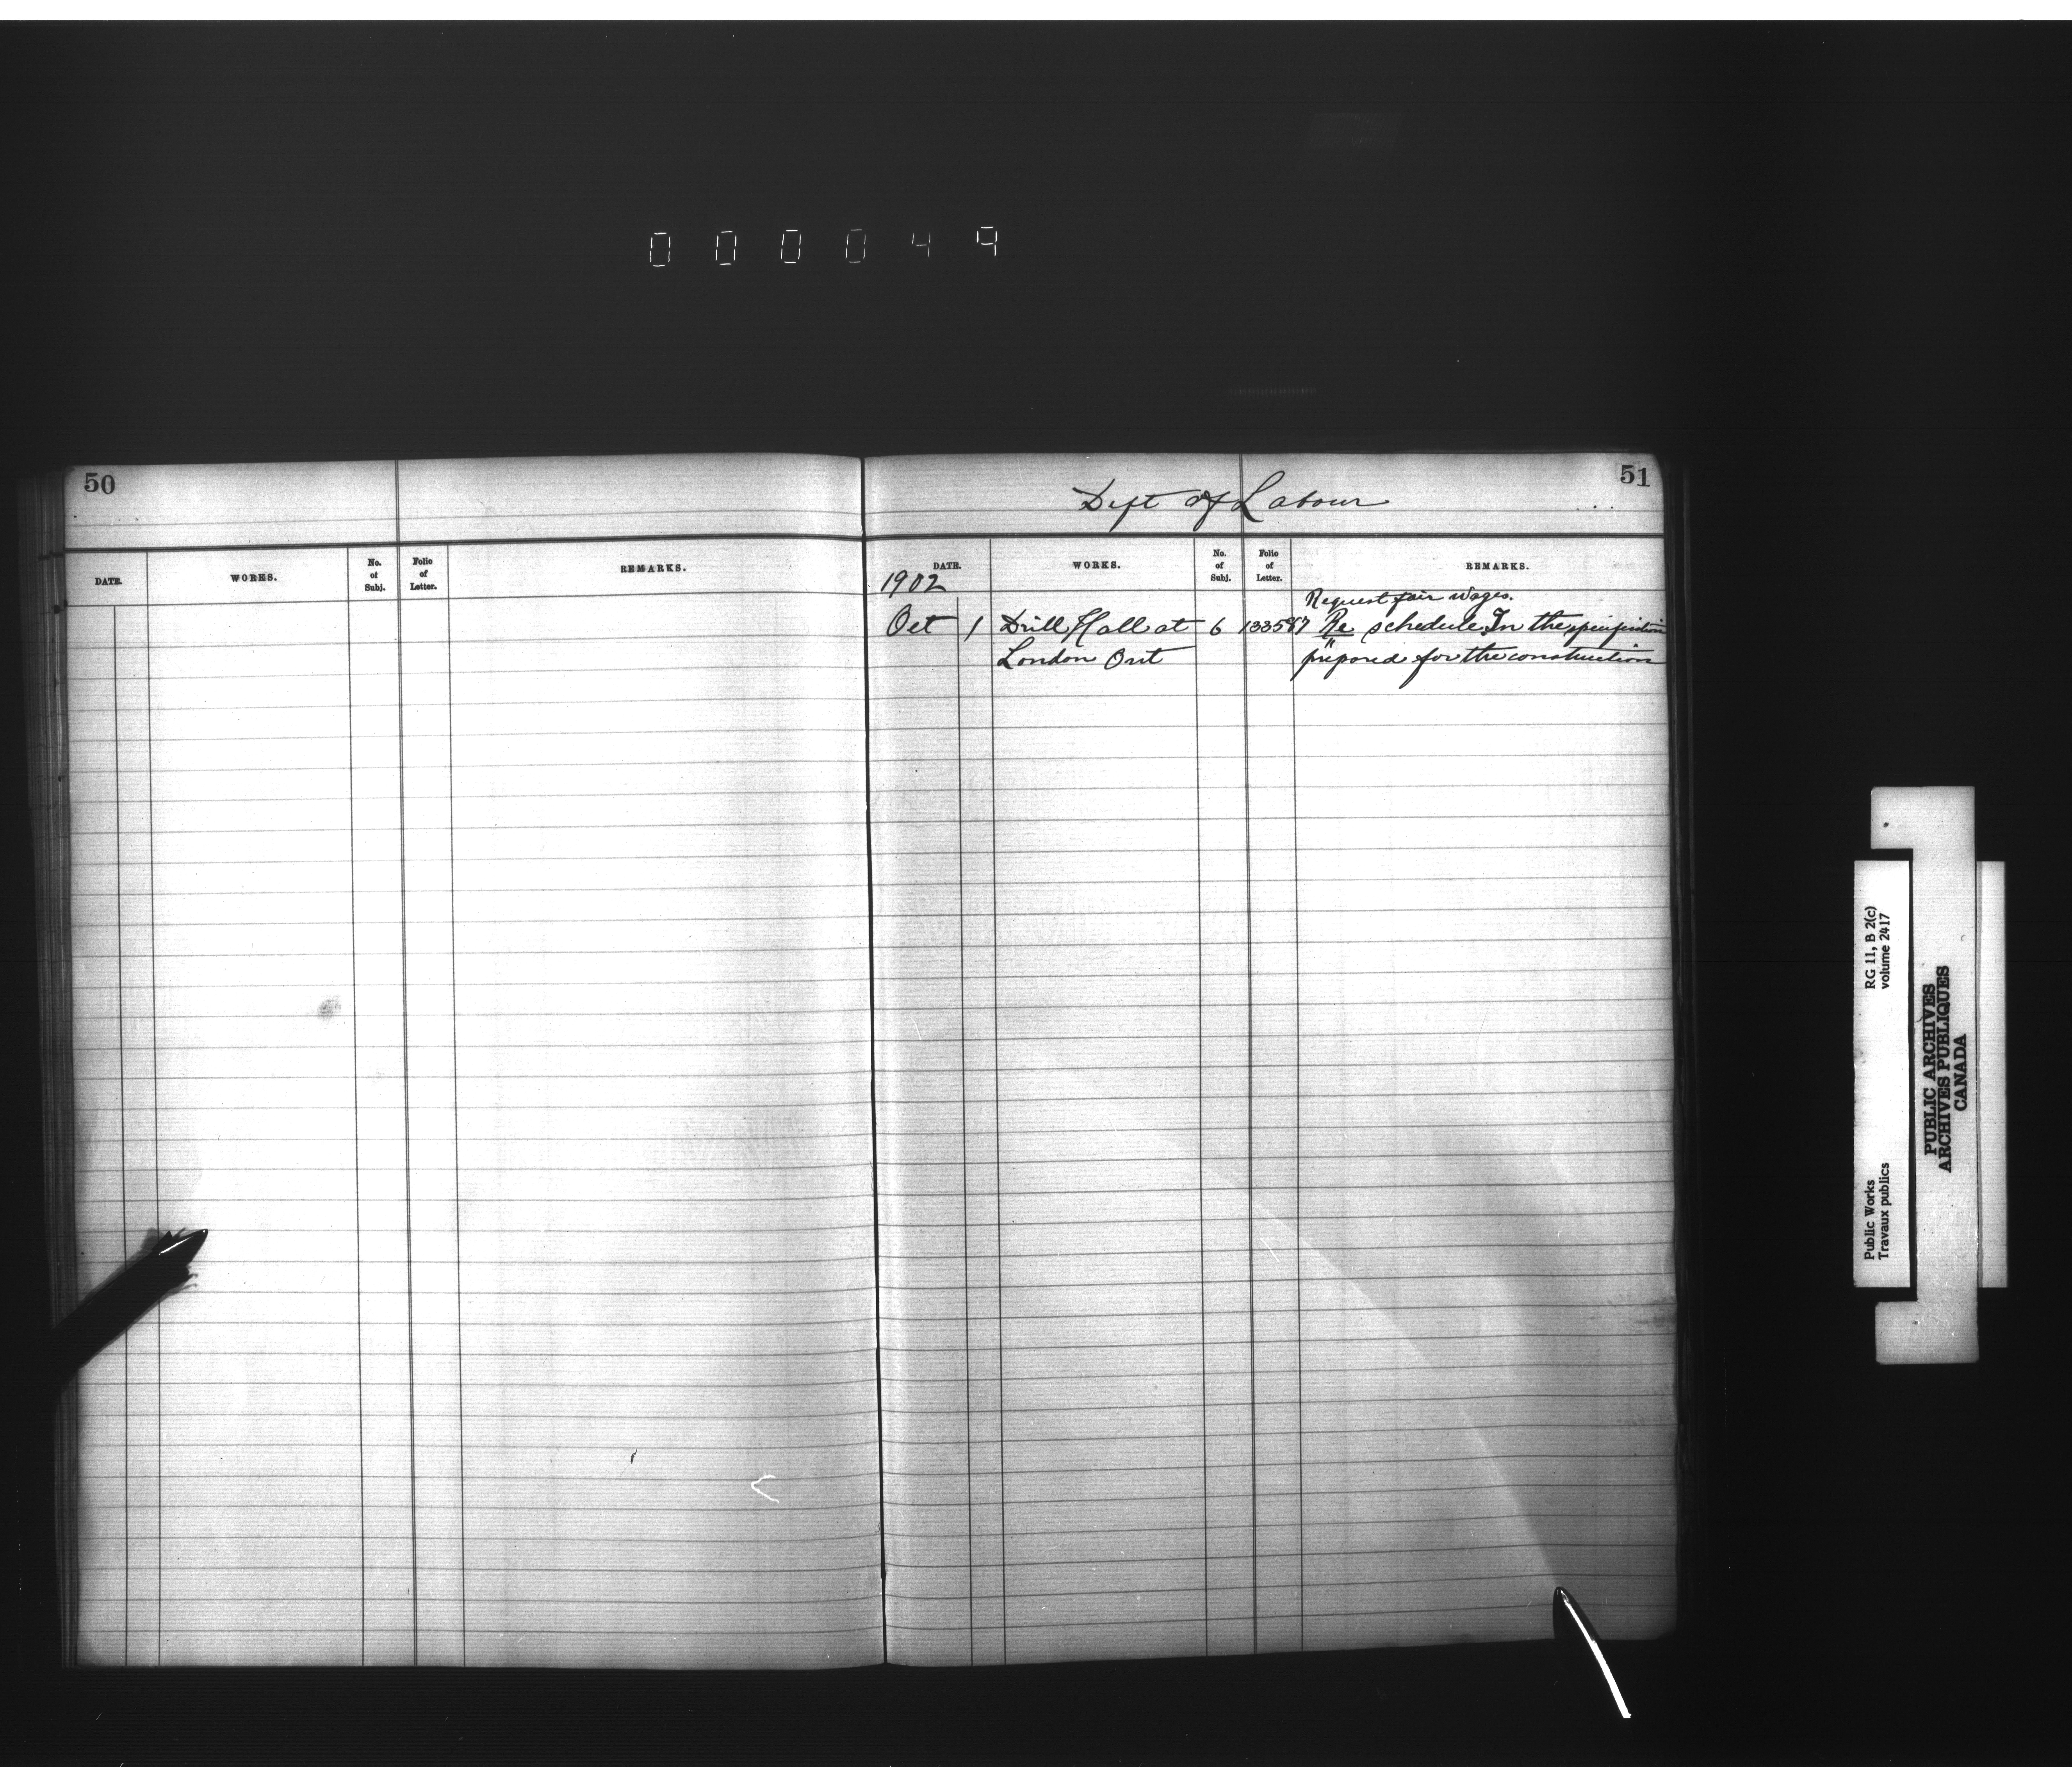 0 0 0 0 4 9
50
DATE. WORKS. No. of Subj. Folio of Letter. REMARKS.
51
Dept of Labour
DATE. WORKS. No. of Subj. Folio of Letter. REMARKS.
1902
Request fair wages.
Oct 1 Drill Hall at 6 133587 Re schedule In the specification
London Ont prepared for the construction
RG 11, B 2(c)
volume 2417
Public Works
Travaux publics
PUBLIC ARCHIVES
ARCHIVES PUBLIQUES
CANADA